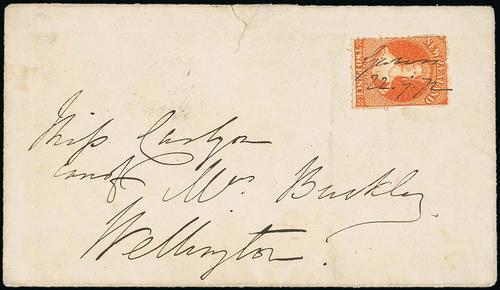 NEW ZEALAND
TWO PENCE
22.7.72
Miss Carlyon
care of Mrs Buckley
Wellington.